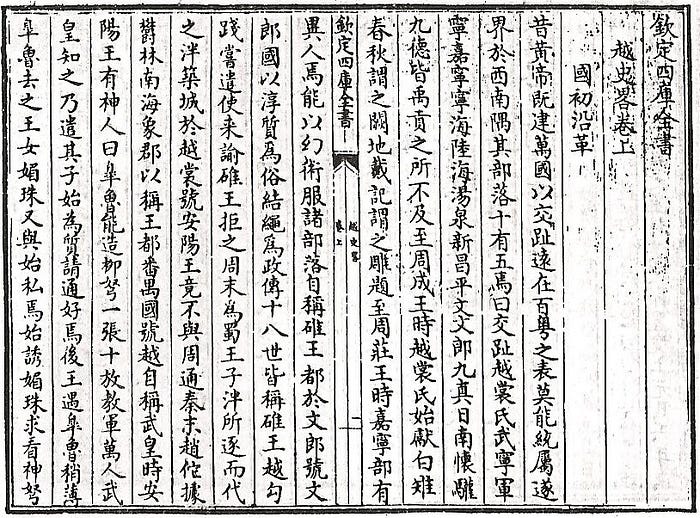 欽定四庫全書
越史畧卷上
國初沿革
昔黃帝既建萬國以交趾遠在百粵之表莫能統屬遂
界於西南隅其部落十有五焉曰交趾越裳氏武寧軍
寧嘉寧寧海陸海湯泉新昌平文文郎九真日南懷驩
九德皆禹貢之所不及至周成王時越裳氏始獻白雉
春秋謂之闕地戴記謂之雕題至周莊王時嘉寧部有
欽定四庫全書
越史畧
卷上
異人焉能以幻術服諸部落自稱碓王都於文郎號文
郎國以淳質為俗結繩為政傳十八世皆稱碓王越勾
踐嘗遣使來諭碓王拒之周末為蜀王子泮所逐而代
之泮築城於越裳號安陽王竟不與周通秦末趙佗據
欝林南海象郡以稱王都番禺國號越自稱武皇時安
陽王有神人曰臯魯能造柳弩一張十放教軍萬人武
皇知之乃遣其子始為質請通好焉後王遇臯魯稍薄
臯魯去之王女媚珠又與始私焉始誘媚珠求看神弩